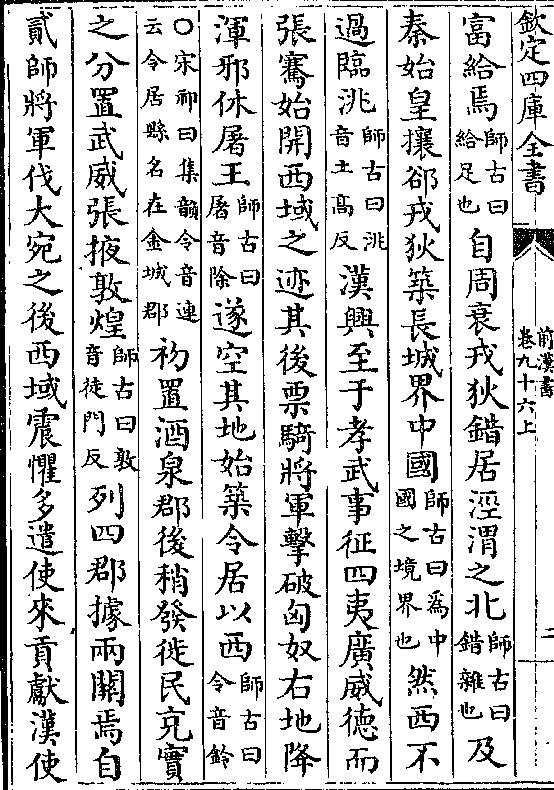 欽定四庫全書
前漢書
卷九十六上
二
富給焉師古曰給足也自周衰戎狄錯居涇渭之北師古曰錯雜也及
秦始皇攘郤戎狄築長城界中國師古曰爲中國之境界也然西不
過臨洮師古曰洮音土高反漢興至于孝武事征四夷廣威德而
張騫始開西域之迹其後票騎將軍擊破匈奴右地降
渾邪休屠王師古曰屠音除遂空其地始築令居以西師古曰令音鈴
○宋祁曰集韻令音連云令居縣名在金城郡初置酒泉郡後稍發徙民充實
之分置武威張掖敦煌師古曰敦音徒門反列四郡據兩關焉自
貳師將軍伐大宛之後西域震懼多遣使來貢獻漢使